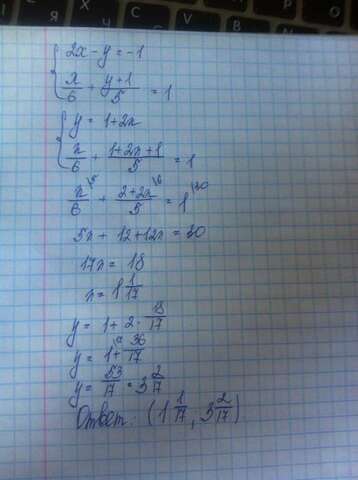 2x - y = -1
x/6 + y+1/5 = 1
y = 1+2x
x/6 + 1+2x+1/5 = 1
x/6 \5 + 2+2x/5 \6 = 1 \30
5x + 12+12x = 30
17x = 18
x = 1 1/17
y = 1+2· 18/17
y = 1+ 36/17
y = 53/17 = 3 2/17
Ответ: (1 1/17, 3 2/17)